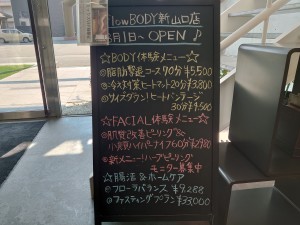 lowBODY新山口店
月1日〜 OPEN♪
☆BODY体験メニュー☆
◎脂肪撃退コース90分¥5,500
◎今スグ対策ヒートマット20分¥3,800
◎サイズダウン!ヒートバンテージ
30分¥9,500
☆FACIAL体験メニュー☆
◎肌質改善ピーリング&
小顔ハイパーナイフ60分¥2980
◎新メニュー!ハーブピーリング
モニター募集中
☆腸活&ホームケア
◎フローラバランス ¥9,288
◎ファスティングプラン ¥33,000